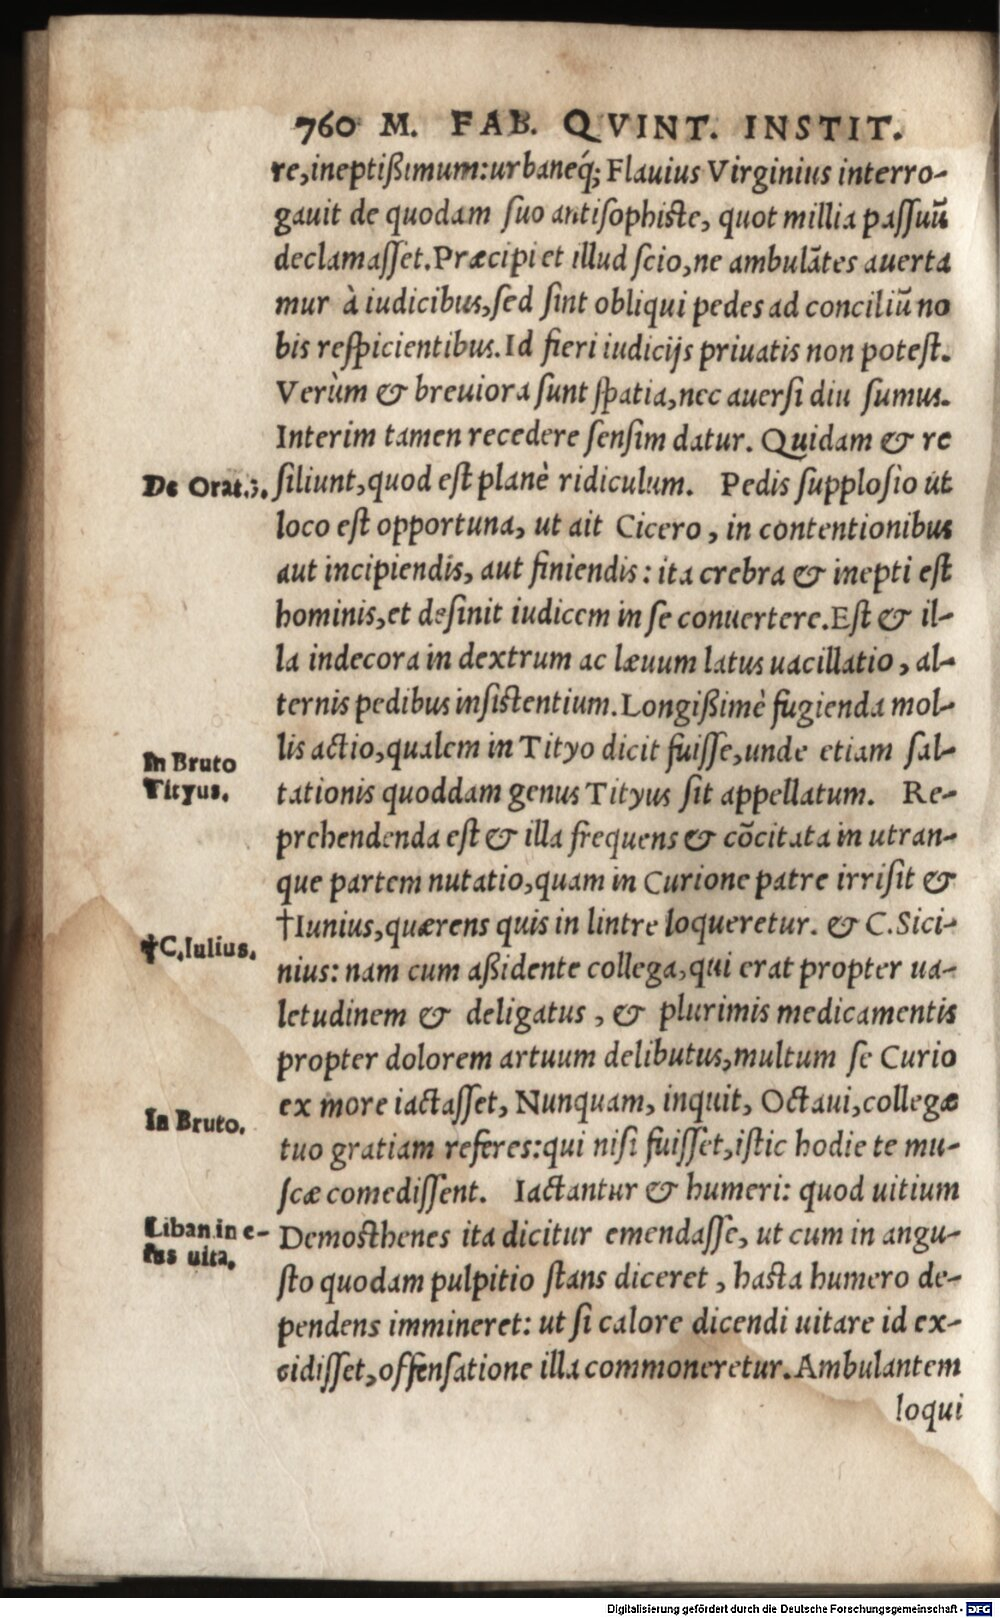 760 M. FAB. QVINT. INSTIT.
re, ineptißimum: urbaneq́; Flauius Virginius interro-
gauit de quodam suo antisophiste, quot millia passuũ
declamasset. Præcipi et illud scio, ne ambulãtes auerta
mur à iudicibus, sed sint obliqui pedes ad conciliũ no
bis respicientibus. Id fieri iudicijs priuatis non potest.
Verùm & breuiora sunt spatia, nec auersi diu sumus.
Interim tamen recedere sensim datur. Quidam & re
De Orat. 3.
siliunt, quod est planè ridiculum. Pedis supplosio ut
loco est opportuna, ut ait Cicero, in contentionibus
aut incipiendis, aut finiendis: ita crebra & inepti est
hominis, et desinit iudicem in se conuertere. Est & il-
la indecora in dextrum ac læuum latus uacillatio, al-
ternis pedibus insistentium. Longißimè fugienda mol-
In Bruto
Tityus.
lis actio, qualem in Tityo dicit fuisse, unde etiam sal-
tationis quoddam genus Tityus sit appellatum. Re-
prehendenda est & illa frequens & cõcitata in utran-
que partem nutatio, quam in Curione patre irrisit &
†C. Iulius.
†Iunius, quærens quis in lintre loqueretur. & C. Sici-
nius: nam cum aßidente collega, qui erat propter ua-
letudinem & deligatus, & plurimis medicamentis
propter dolorem artuum delibutus, multum se Curio
In Bruto.
ex more iactasset, Nunquam, inquit, Octaui, collegæ
tuo gratiam referes: qui nisi fuisset, istic hodie te mu-
scæ comedissent. Iactantur & humeri: quod uitium
Liban. in e-
ius uita.
Demosthenes ita dicitur emendasse, ut cum in angu-
sto quodam pulpitio stans diceret, hasta humero de-
pendens immineret: ut si calore dicendi uitare id ex-
cidisset, offensatione illa commoneretur. Ambulantem
loqui
Digitalisierung gefördert durch die Deutsche Forschungsgemeinschaft - DFG